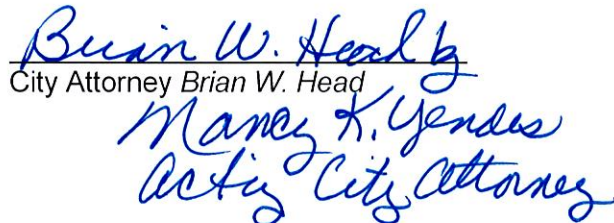 Brian W. Head by
City Attorney Brian W. Head
Nancy K. Yendes
Acting City Attorney